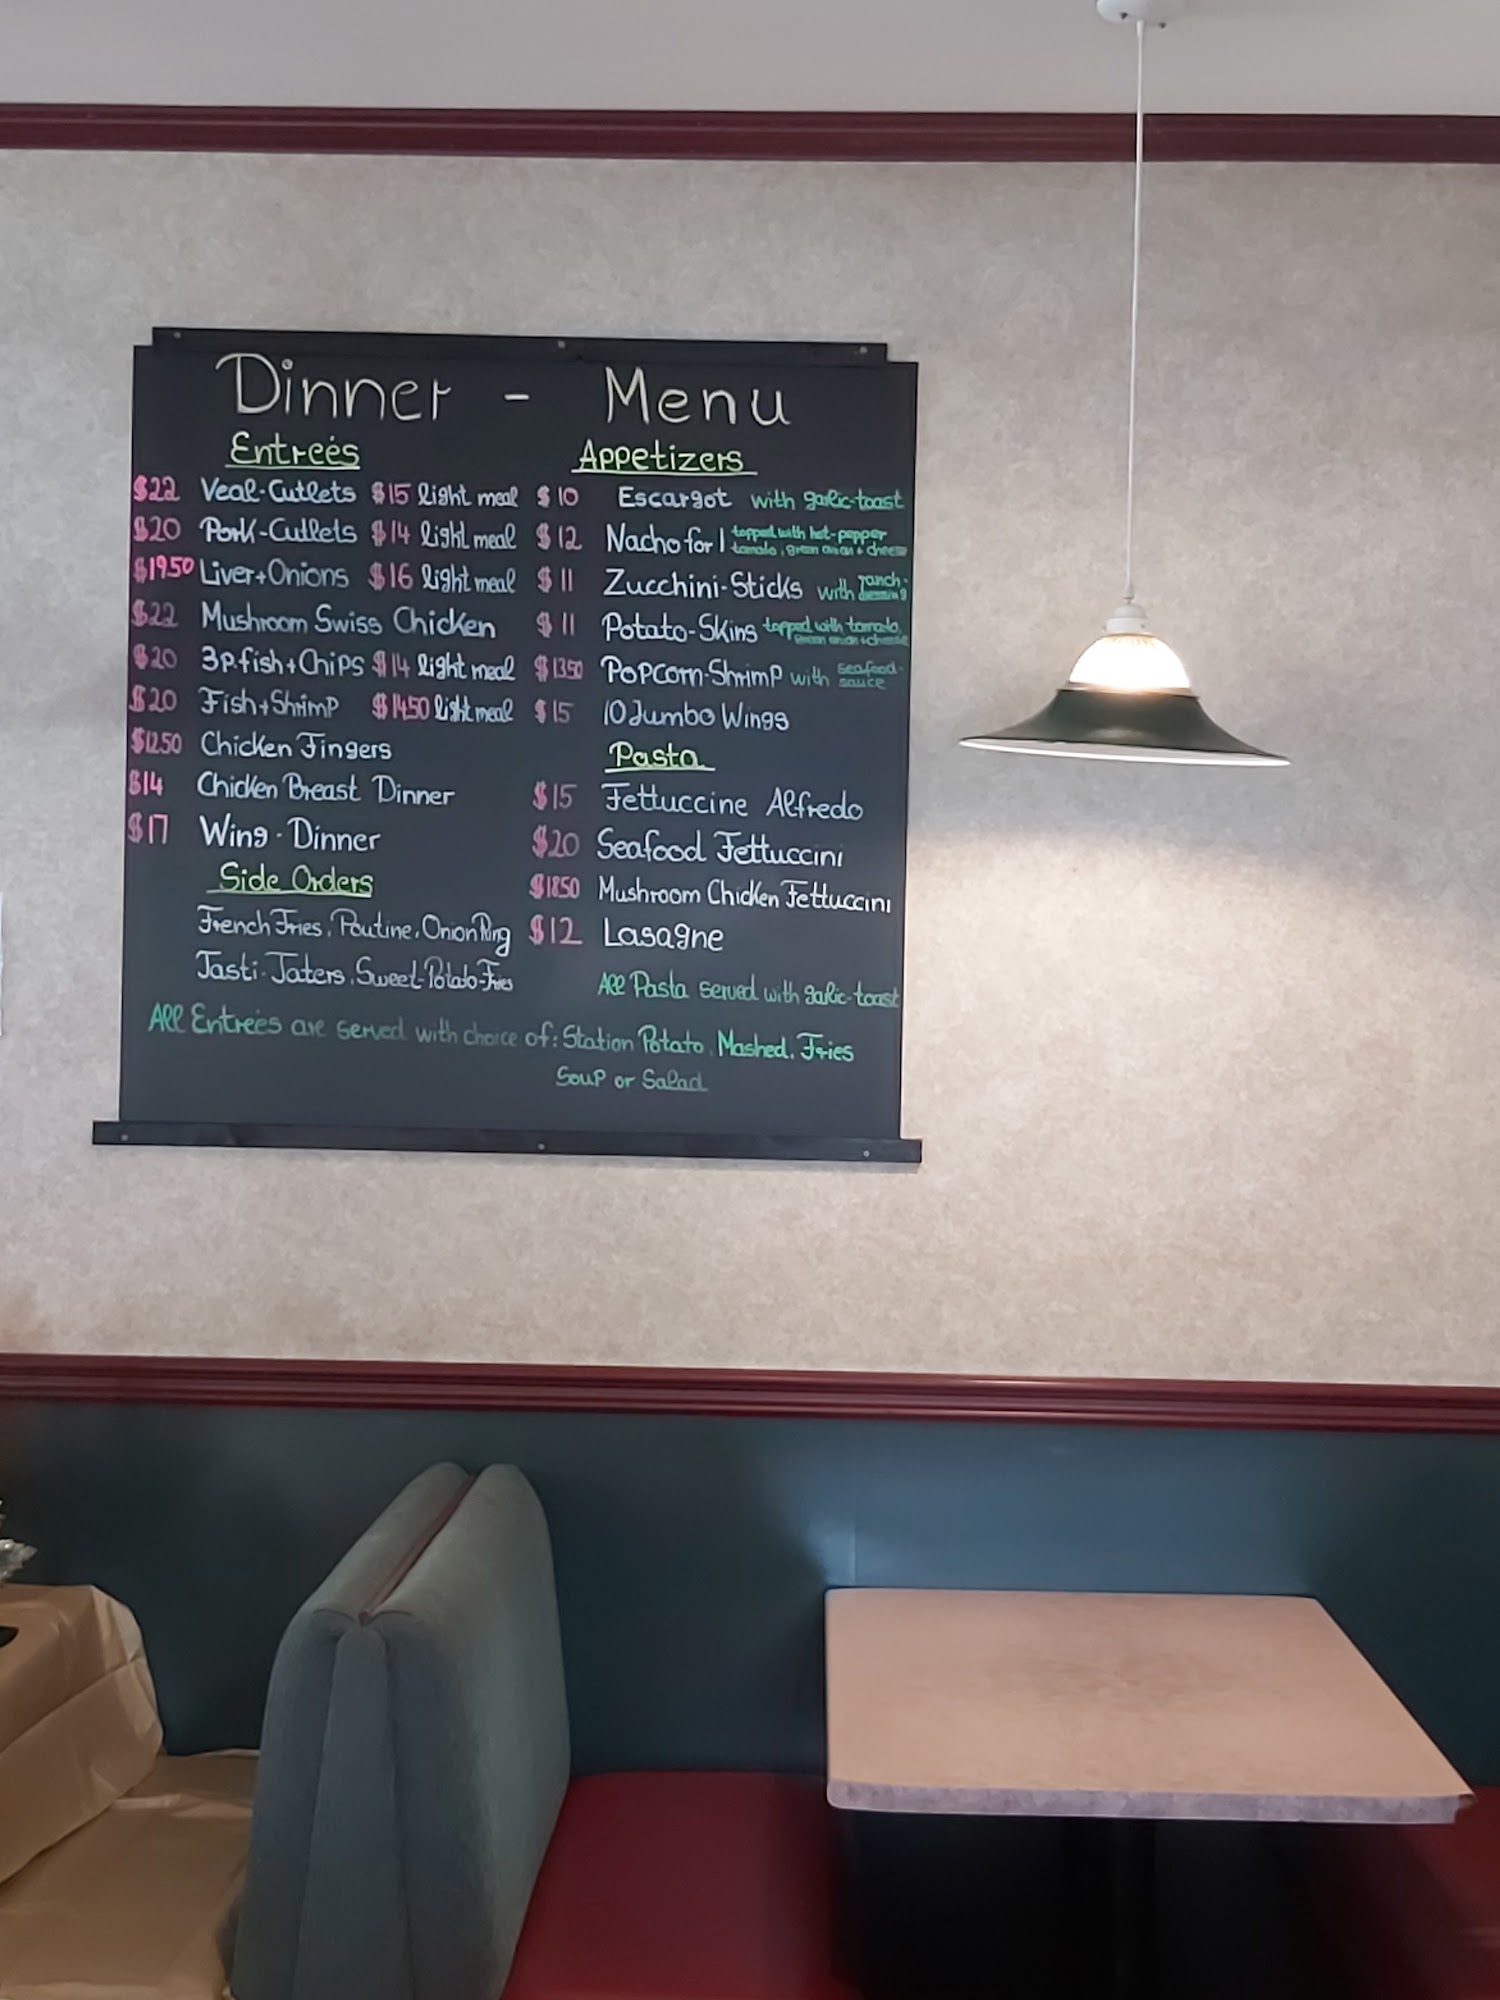 Dinner - Menu
Entreés
$22 Veal-Cutlets $15 light meal
$20 Pork-Cutlets $14 light meal
$1950 Liver+Onions $16 light meal
$22 Mushroom Swiss Chicken
$20 3p.fish+Chips $14 light meal
$20 Fish+Shrimp $1450 light meal
$1250 Chicken Fingers
$14 Chicken Breast Dinner
$17 Wing-Dinner
Side Orders
French Fries, Poutine, Onion Ring
Tasti-Taters, Sweet-Potato-Fries
Appetizers
$10 Escargot with garlic-toast
$12 Nacho for 1 topped with hot-pepper
tomato, green onion + cheese
$11 Zucchini-Sticks with ranch-
dressing
$11 Potato-Skins topped with tomato,
green onion+cheese
$1350 Popcorn-Shrimp with seafood-
sauce
$15 10 Jumbo Wings
Pasta
$15 Fettuccine Alfredo
$20 Seafood Fettuccini
$1850 Mushroom Chicken Fettuccini
$12 Lasagne
All Pasta served with garlic-toast
All Entreés are served with choice of: Station Potato, Mashed, Fries
Soup or Salad